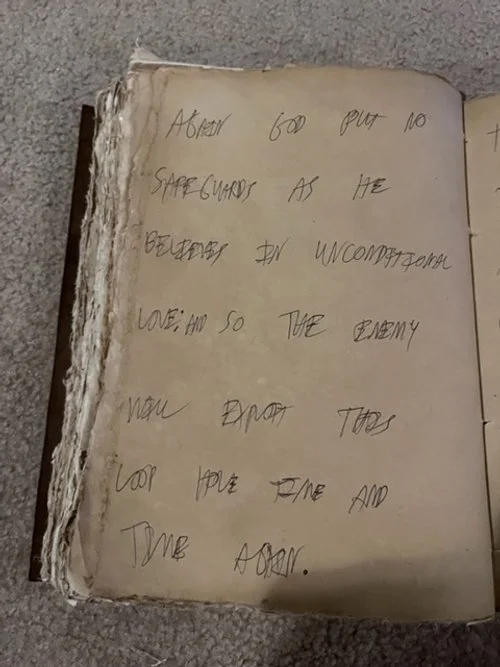 AGAIN GOD PUT NO
SAFEGUARDS AS HE
BELIEVES IN UNCONDITIONAL
LOVE; AND SO THE ENEMY
WILL EXPLOIT THIS
LOOP HOLE TIME AND
TIME AGAIN.